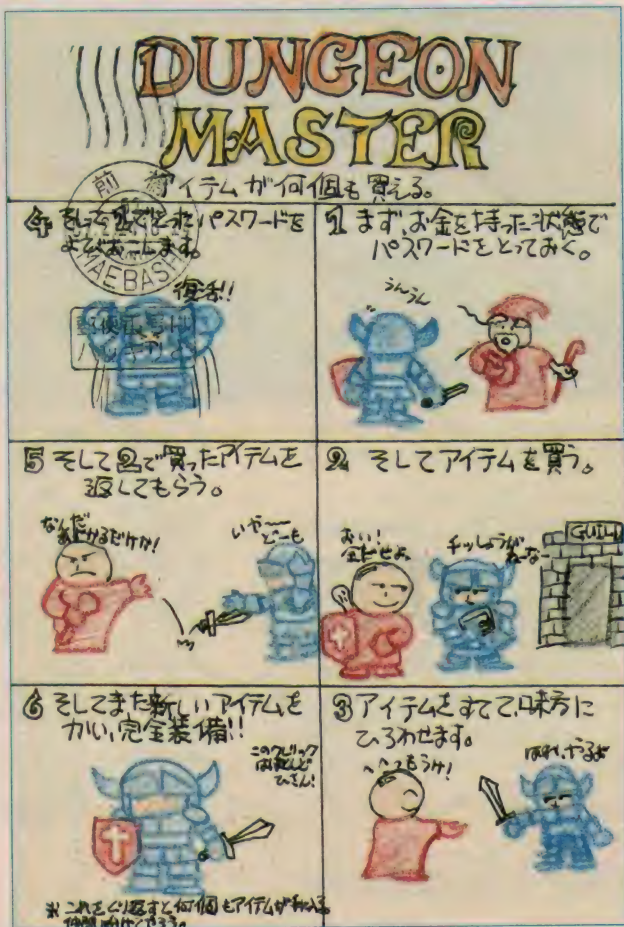 DUNGEON
MASTER
アイテムが何個も買える。
1 まず、お金を持った状態で
パスワードをとっておく。
うんうん
2 そしてアイテムを買う。
おい!
金だせよ
チッしょうが
ねーな
GUILD
3 アイテムをすてて、味方に
ひろわせます。
へへへもうけ!
ほれ、やるよ
4 そして1でとったパスワードを
よびおこします。
復活!!
前橋
MAEBASHI
郵便番号は
ハッキリと
5 そして2で買ったアイテムを
返してもらう。
なんだ
あずけるだけか!
いや~~
どーも
6 そしてまた新しいアイテムを
かい、完全装備!!
※ これをくり返すと何個もアイテムが手に入る。